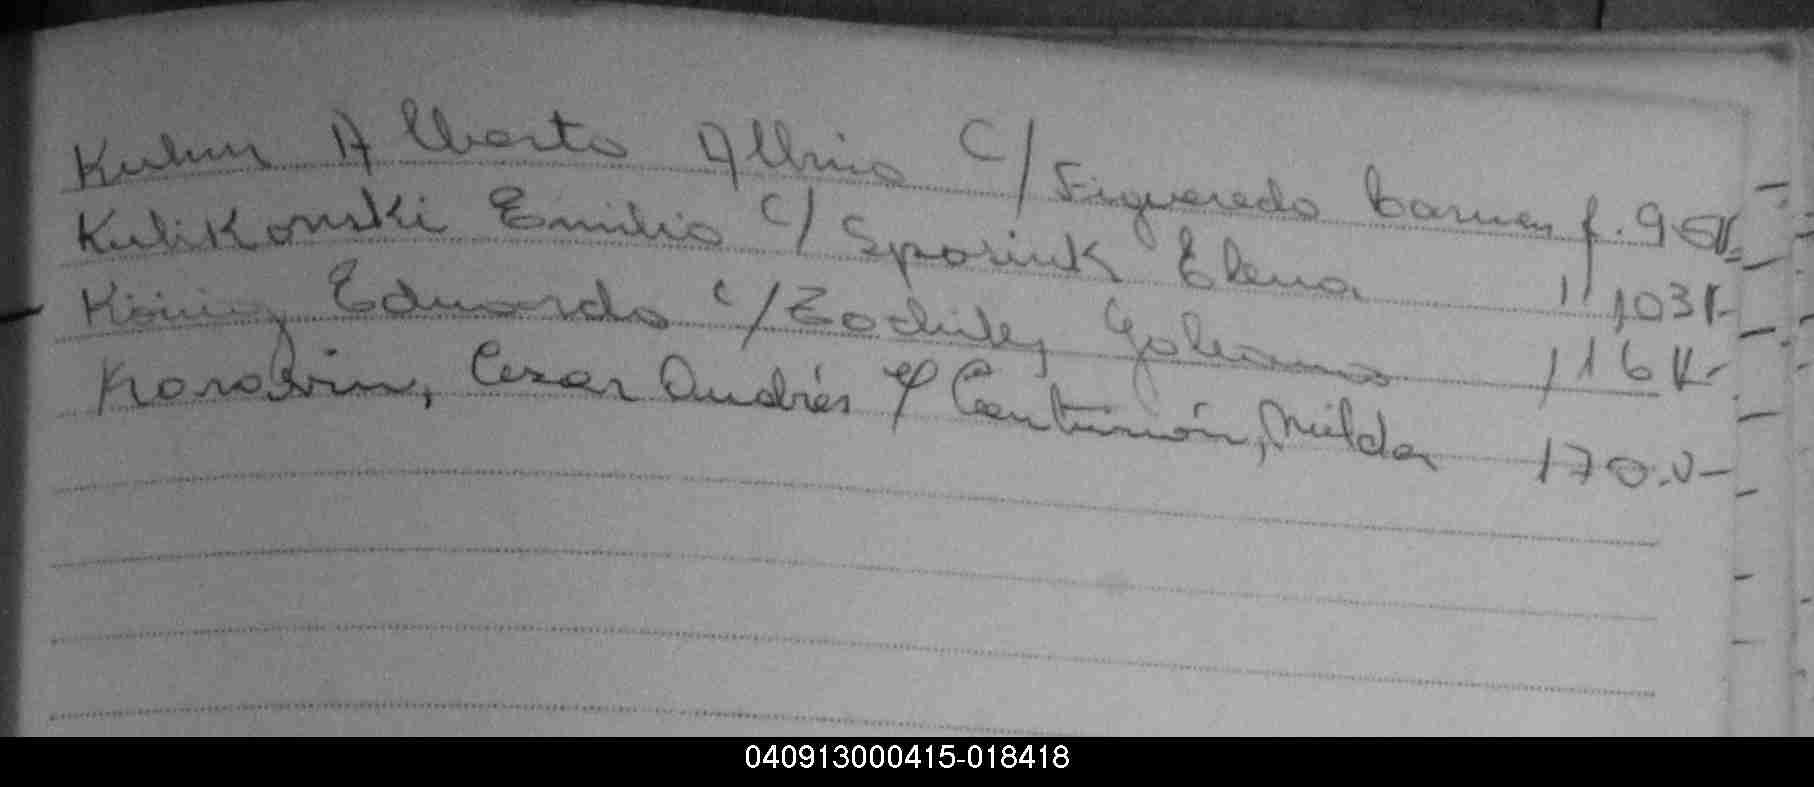 Kuhn Alberto Albino C/ Figueredo Carmen f. 96V.
Kulikonski Emilio c/ Sporiuk Elena " 103V-
König Eduardo c/ 116V-
Korobin, Cezar Andrés c/ Centurión, Nilda 170.V-
040913000415-018418